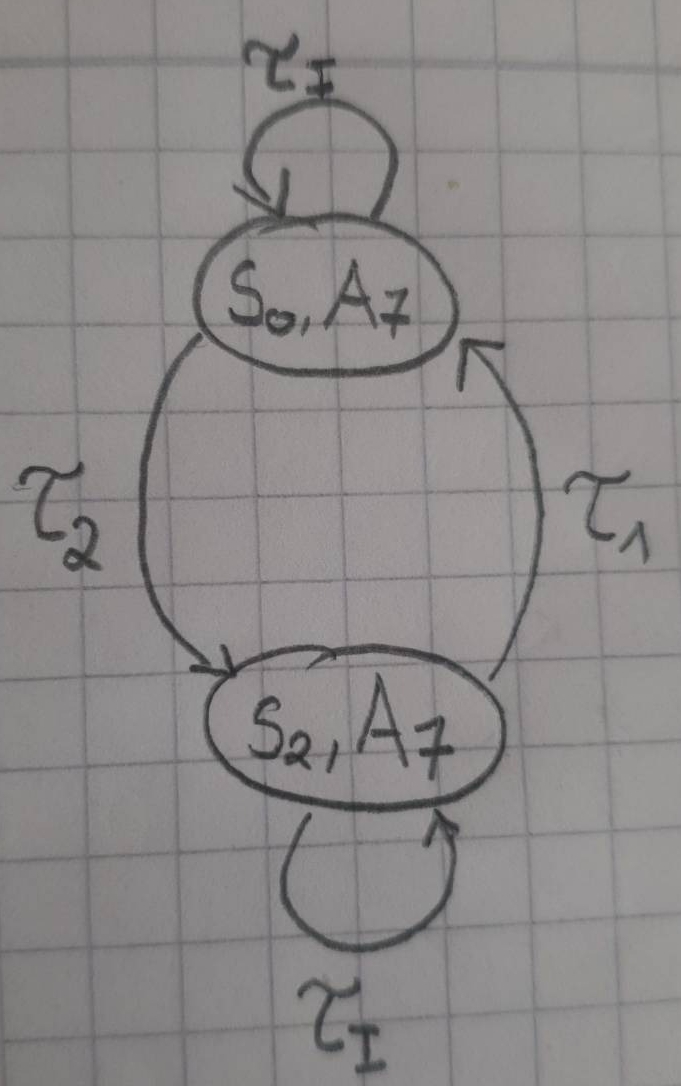 τI
S0, A7
τ2
τ1
S2, A7
τI